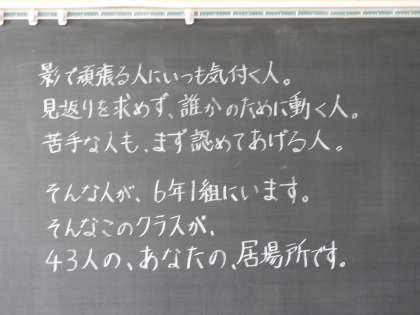 影で頑張る人にいつも気付く人。
見返りを求めず、誰かのために動く人。
苦手な人も、まず認めてあげる人。
そんな人が、6年1組にいます。
そんなこのクラスが、
43人の、あなたの、居場所です。